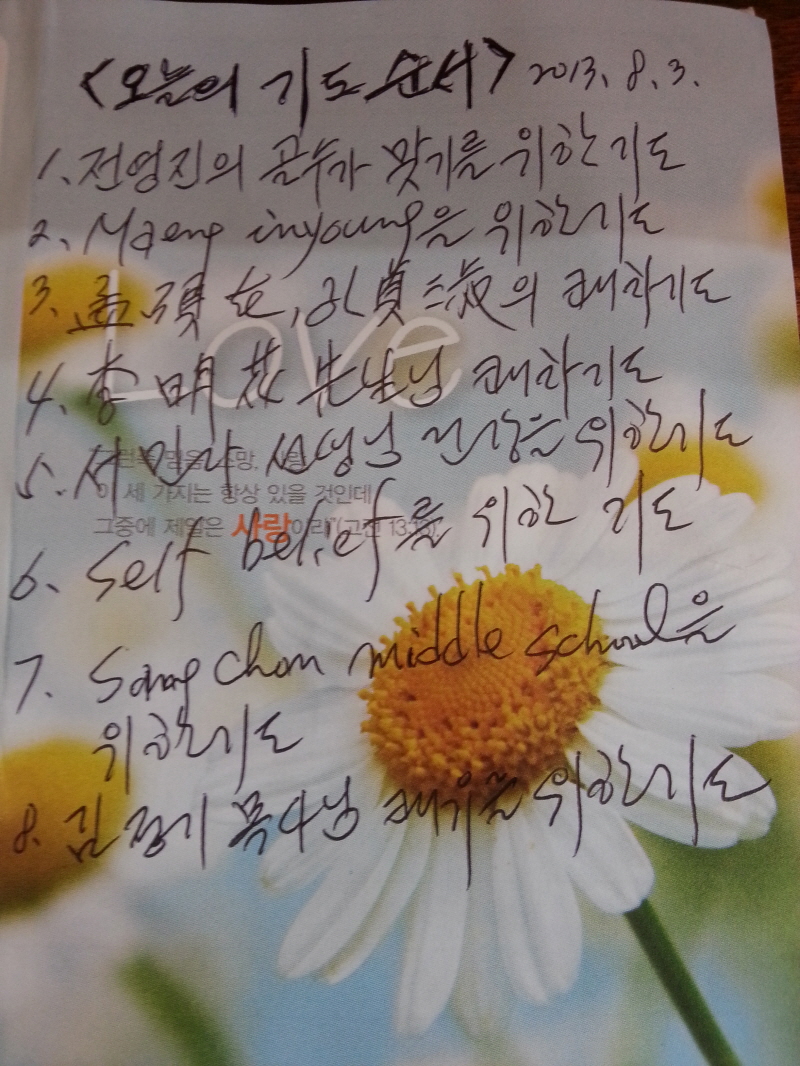 <오늘의 기도 순서> 2013. 8. 3.
1. 전영진의 골수가 맞기를 위한 기도
2. Maeng inyoung을 위한기도
3. 孟 의 쾌차기도
Love
4. 李明 先生님 쾌차기도
5. 서 선생님 건강을 위한기도
이 세 가지는 항상 있을 것인데
그중에 제일은 사랑이라"(고전 13:13)
6. Self belief를 위한 기도
7. Sang Chon middle school을
위한기도
8. 김정기 목사님 쾌유를 위한기도